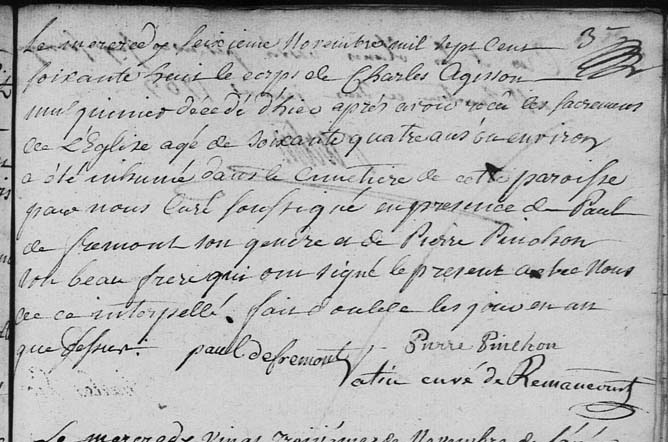 Le mercredy seixieme Novembre mil sept cent
soixante huit le corps de Charles Agisson
mulquinier décédé d'hier après avoir reçu les sacremens
de L'Eglise agé de soixante quatre ans ou environ
a été inhumé dans le Cimetiere de cette paroisse
par nous Curé soussigné en presence de Paul
de fremont son gendre et de Pierre Pinchon
son beau frere qui ont signé le present acte Nous
de ce interpellé. fait double les jour en an
que dessus. paul defremont Pierre Pinchon
curé de Remaucourt
Le mercredy vingt troisième de Novembre de